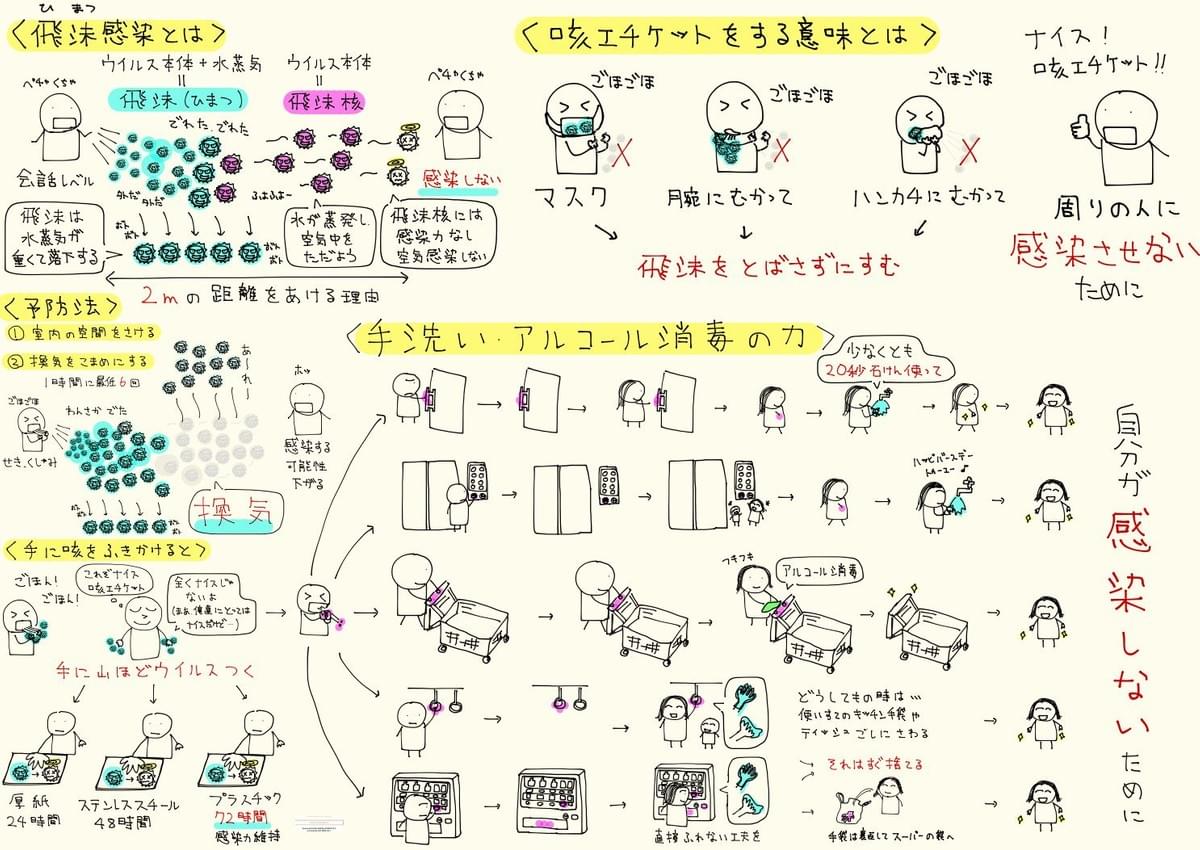 ひまつ
<飛沫感染とは>
ウイルス本体+水蒸気
=
飛沫(ひまつ)
ウイルス本体
=
飛沫核
ペチャくちゃ
ペチャくちゃ
でれた、でれた
会話レベル
外だ
外だ
ふよふよ〜
感染しない
飛沫は
水蒸気が
重くて落下する
ボト
ボト
ボト
ボト
水が蒸発し
空気中を
ただよう
飛沫核には
感染力なし
空気感染しない
2mの距離をあける理由
<咳エチケットをする意味とは>
ごほごほ
ごほごほ
ごほごほ
マスク
腕にむかって
ハンカチにむかって
飛沫をとばさずにすむ
ナイス!
咳エチケット!!
周りの人に
感染させない
ために
<予防法>
① 室内の空間をさける
② 換気をこまめにする
1時間に最低6回
あ〜れ〜
ごほごほ
わんさか でた
せき、くしゃみ
ホッ
感染する
可能性
下がる
換気
ボト
ボト
ボト
ボト
<手に咳をふきかけると>
ごほん!
ごほん!
これぞナイス
咳エチケット
全くナイスじゃ
ないよ
(まぁ、僕達にとっては
ナイスだけど…)
手に山ほどウイルスつく
厚紙
24時間
ステンレススチール
48時間
プラスチック
72時間
感染力維持
<手洗い・アルコール消毒の力>
少なくとも
20秒石けん使って
ハッピバースデー
トゥーユー♪
フキフキ
アルコール消毒
どうしてもの時は…
使いすてのキッチン手袋や
ティッシュごしにさわる
それはすぐ捨てる
直接ふれない工夫を
手袋は裏返してスーパーの袋へ
自分が感染しないために